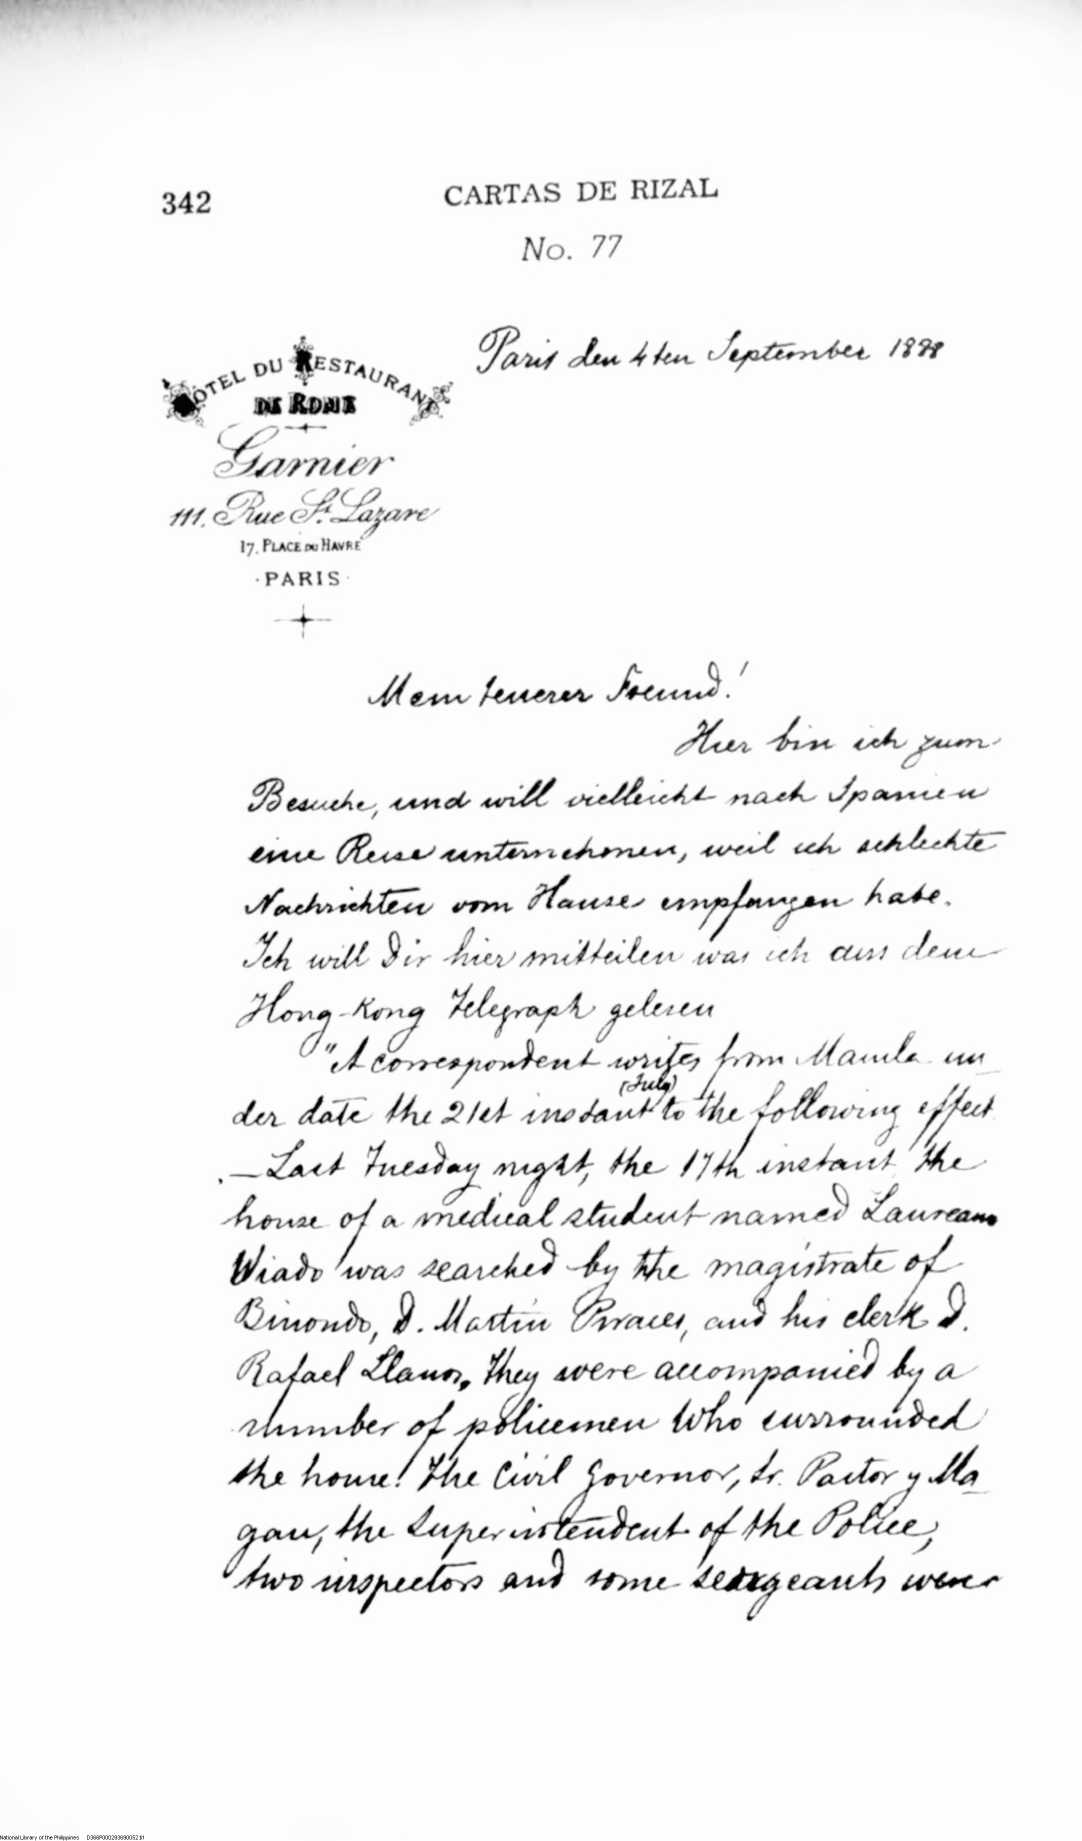 342
CARTAS DE RIZAL
No. 77
Paris den 4ten September 1888
HOTEL DU RESTAURANT
DE ROME
Garnier
111. Rue St. Lazare
17. PLACE DU HAVRE
PARIS
Mein teuerer Freund!
Hier bin ich zum
Besuche, und will vielleicht nach Spanien
eine Reise unternehmen, weil ich schlechte
Nachrichten vom Hause empfangen habe.
Ich will Dir hier mitteilen was ich aus dem
Hong-Kong Telegraph gelesen
"A correspondent writes from Manila un-
(July)
der date the 21st instant to the following effect
.—Last Tuesday night, the 17th instant the
house of a medical student named Laureano
Viado was searched by the magistrate of
Binondo, D. Martin and his clerk D.
Rafael Llanos. They were accompanied by a
number of policemen who surrounded
the house. The Civil Governor, Sr. Pastor y Ma-
gan, the Superintendent of the Police,
two inspectors and some seargeants were
National Library of the Philippines